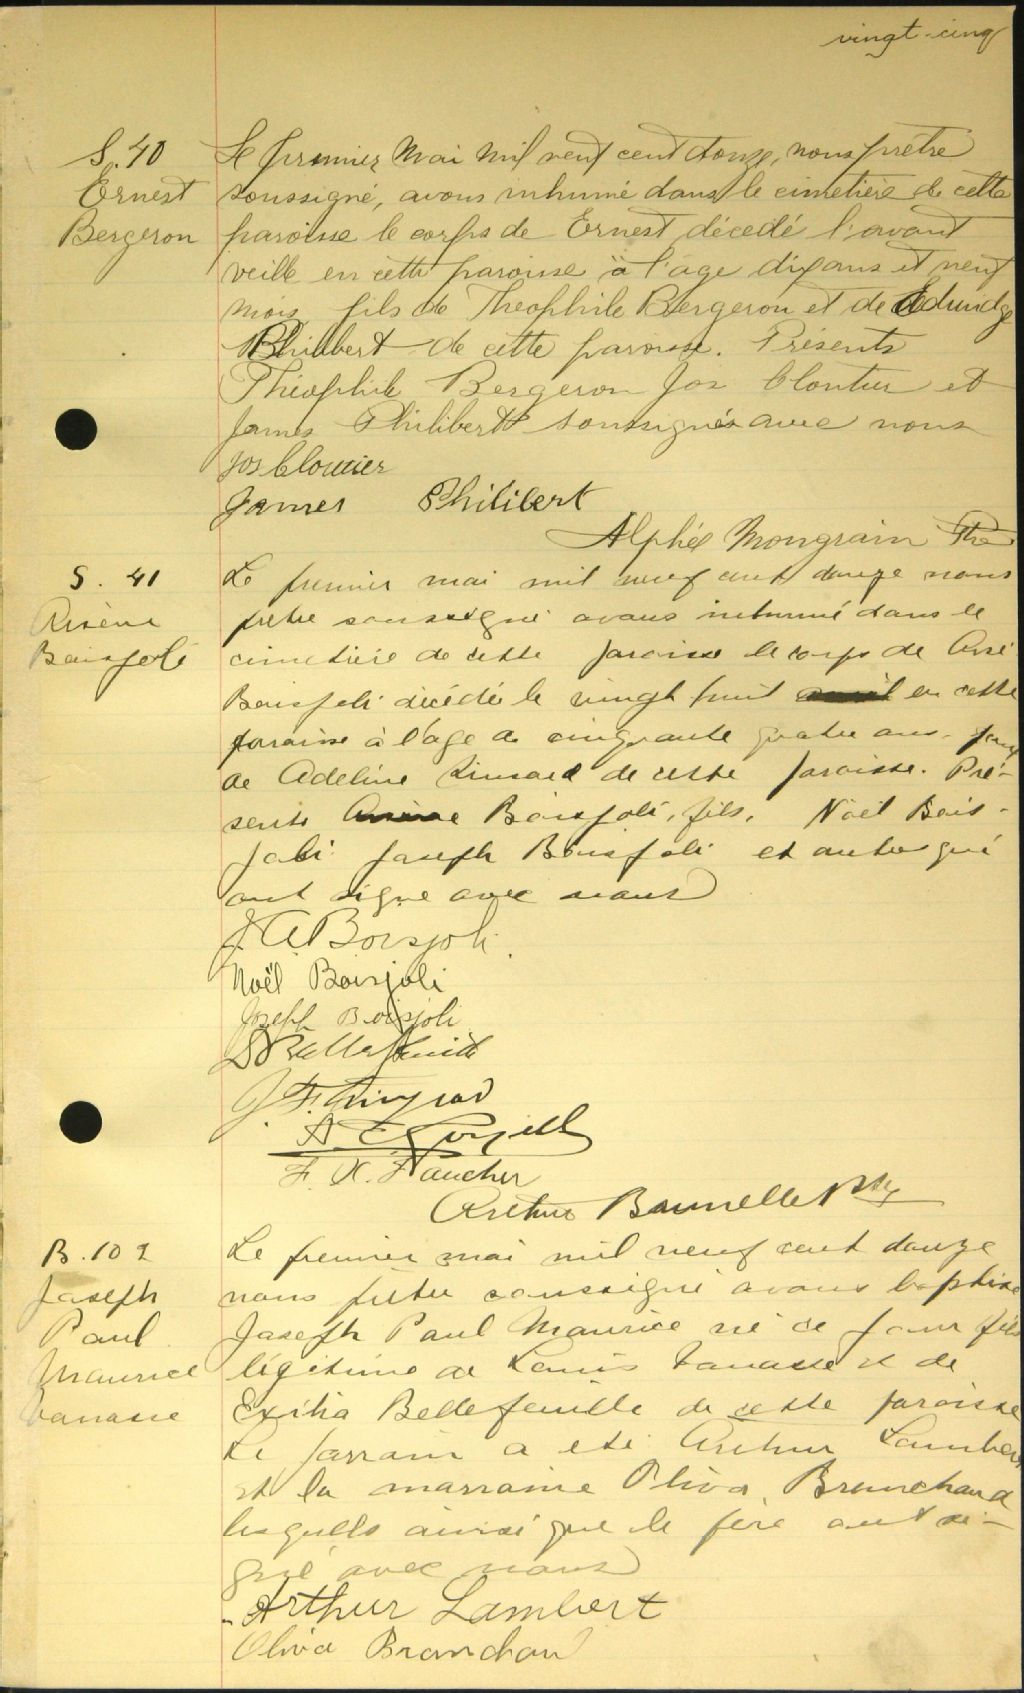 vingt-cinq
S. 40
Ernest
Bergeron
Le premier Mai mil neuf cent douze, nous prêtre
soussigné, avons inhumé dans le cimetière de cette
paroisse le corps de Ernest décédé l'avant
veille en cette paroisse à l'âge dix ans et neuf
mois fils de Théophile Bergeron et de Edwidge
Philibert de cette paroisse. Présents
Théophile Bergeron Jos Cloutier et
James Philibert soussignés avec nous
Jos Cloutier
James Philibert
Alphée Mongrain Ptre
S. 41
Arsène
Boisjoli
Le premier mai mil neuf cent douze nous
prêtre soussigné avons inhumé dans le
cimetière de cette paroisse le corps de Arsè
Boisjoli décédé le vingt huit en cette
paroisse à l'âge de cinquante quatre ans
de Adeline de cette paroisse. Pré-
sents Boisjoli, fils, Noël Bois-
joli Joseph Boisjoli et autres qui
ont signé avec nous
J. A Boisjoli
Noël Boisjoli
Joseph Boisjoli
F. X. Faucher
Arthur Ptre
B. 102
Joseph
Paul
Maurice
Vanasse
Le premier mai mil neuf cent douze
nous prêtre soussigné avons baptisé
Joseph Paul Maurice né ce jour fils
légitime de Louis Vanasse et de
Exilia Bellefeuille de cette paroisse
Le parrain a été Arthur Lambert
et la marraine Oliva Branchaud
lesquels ainsi que le père ont si-
gné avec nous
Arthur Lambert
Oliva Branchau